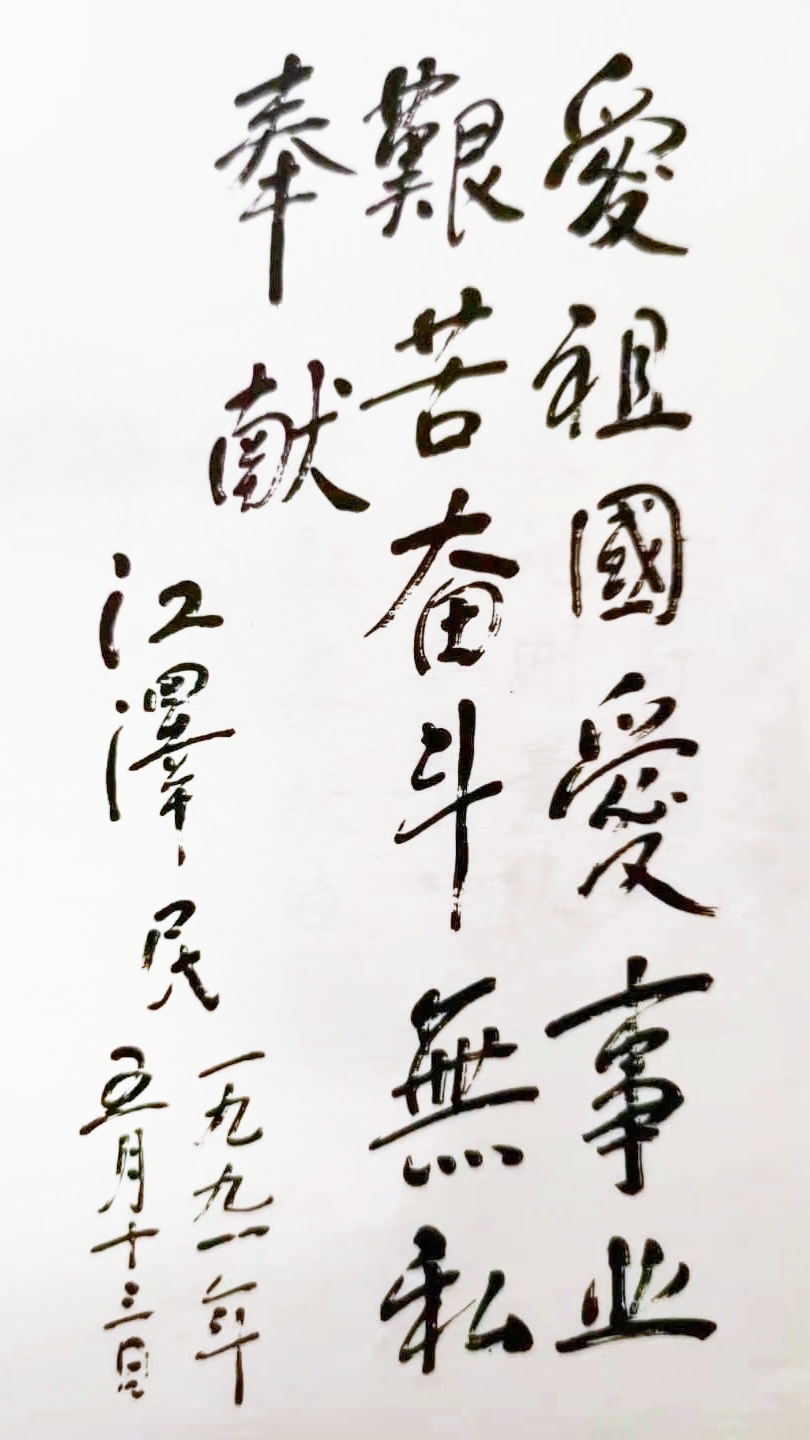 愛祖國愛事业
艱苦奋斗無私
奉献
江澤民
一九九一年
五月十三日